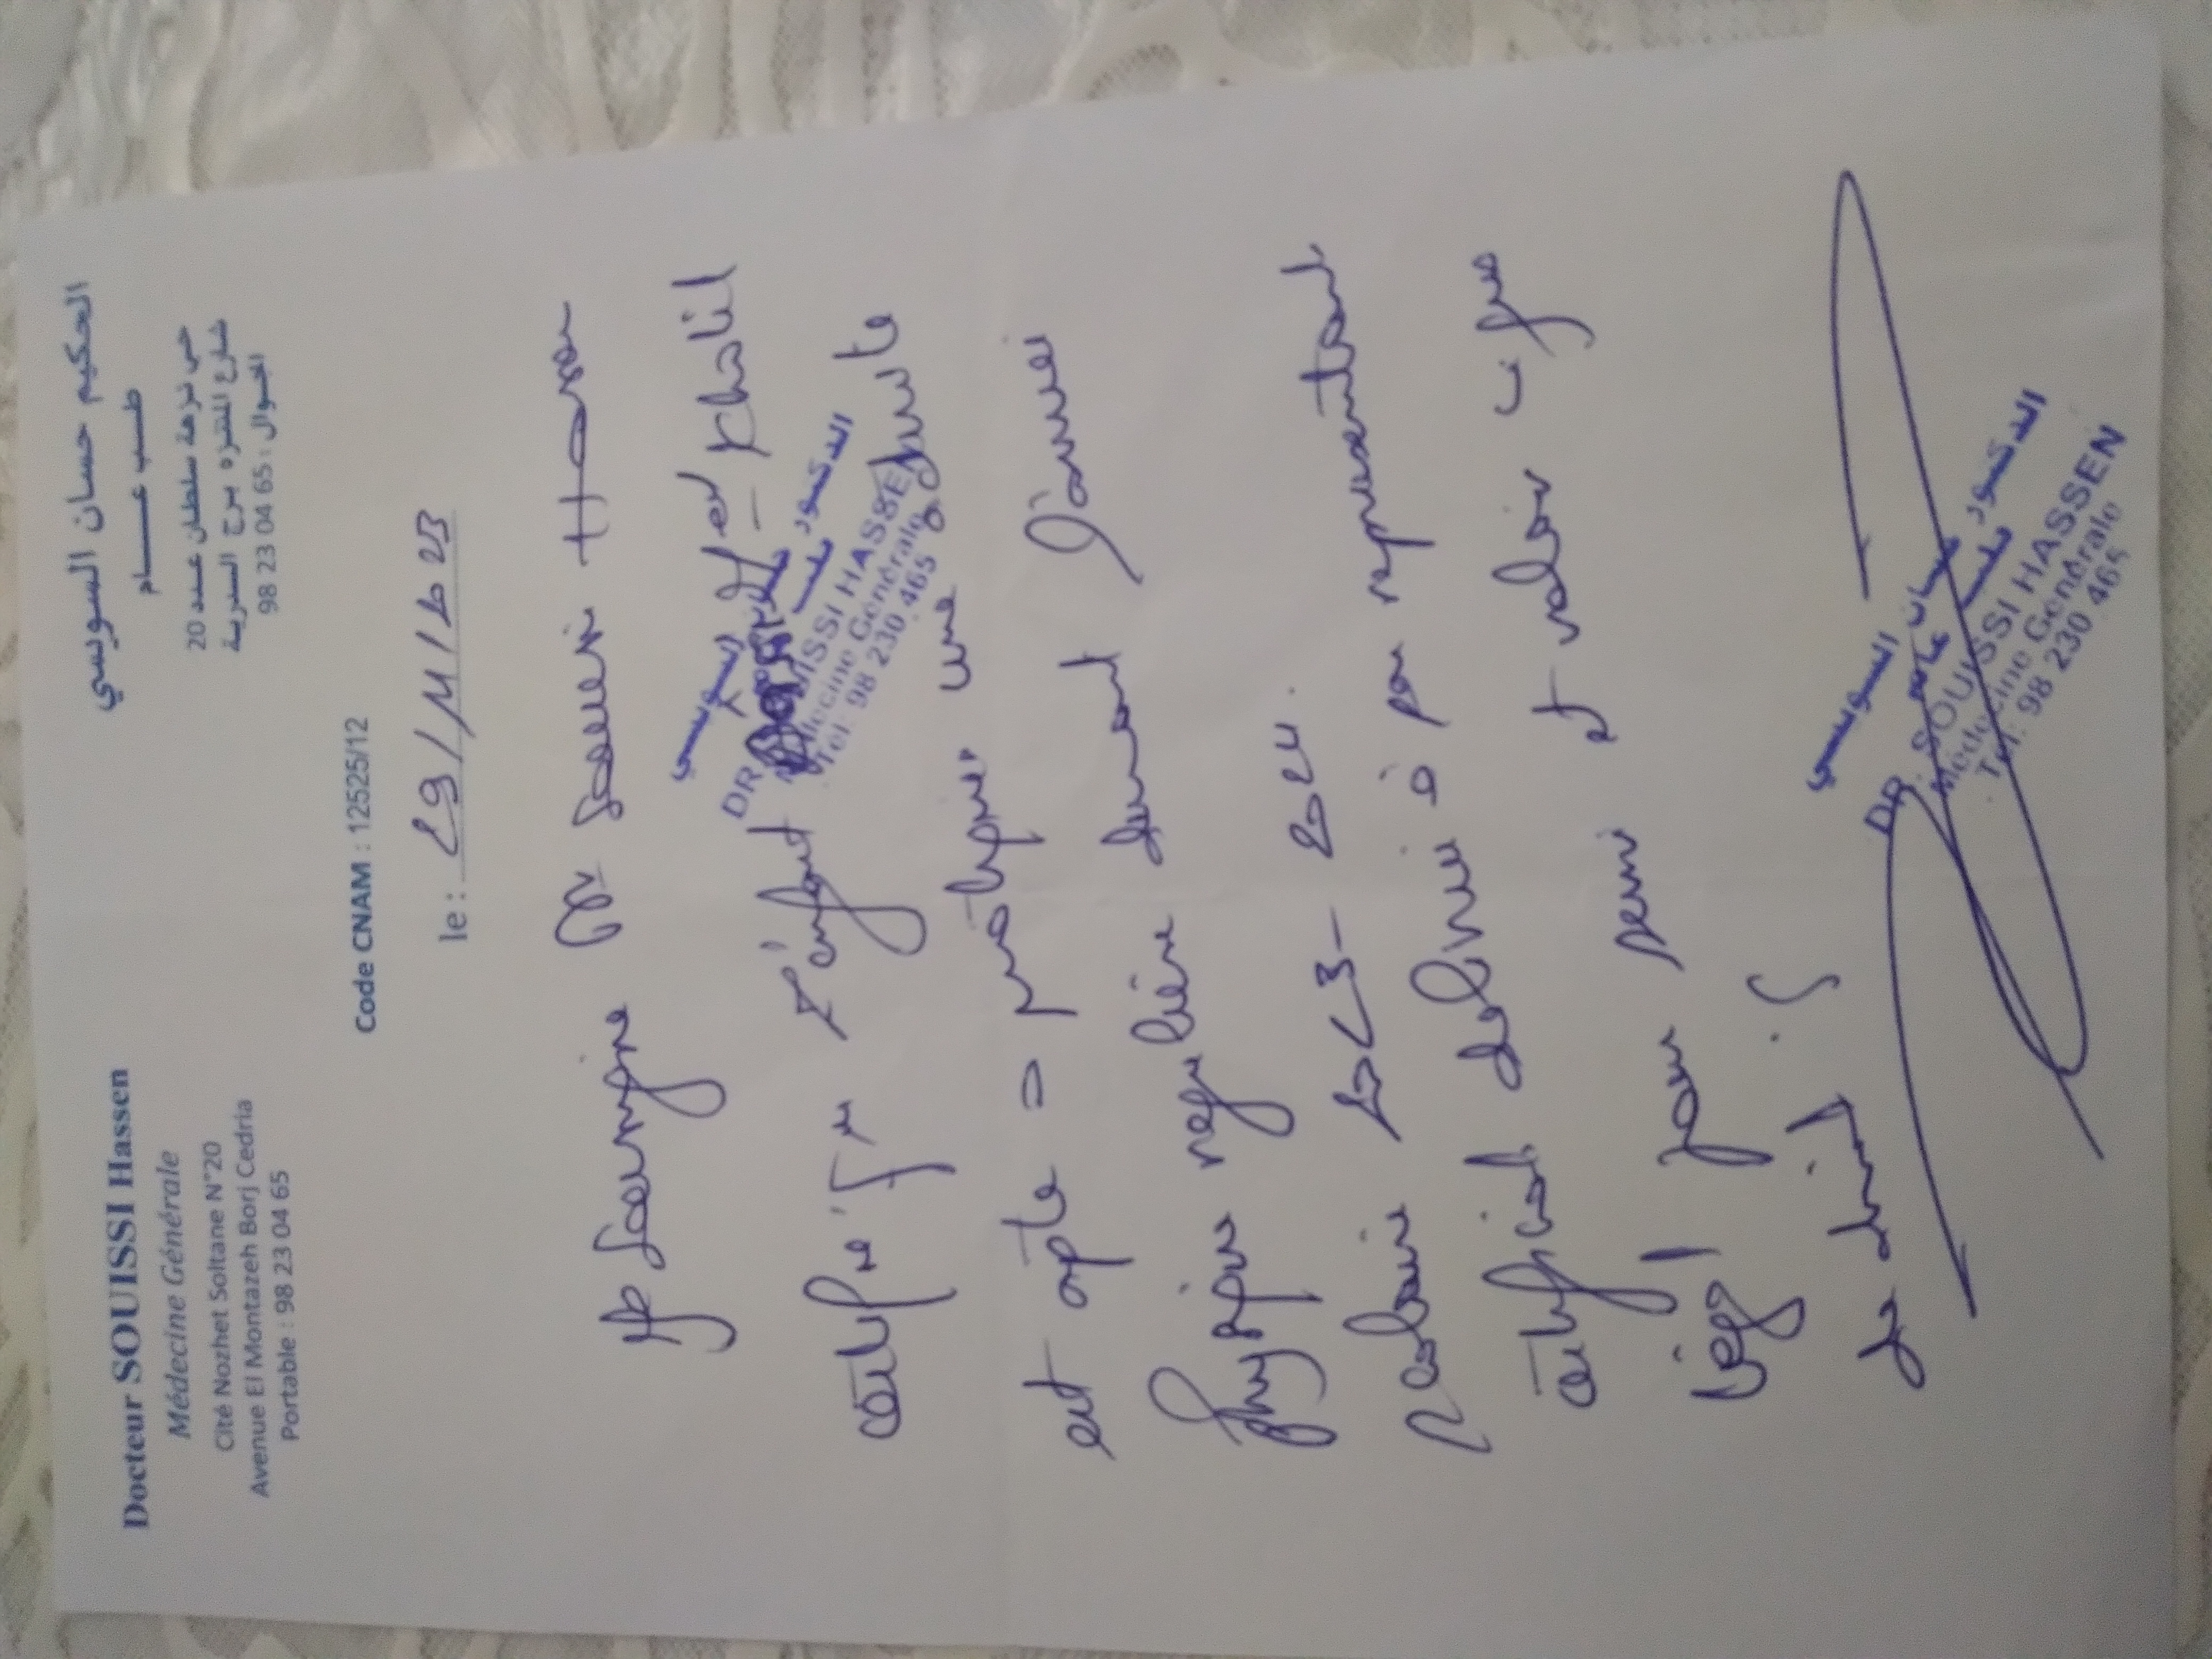 Docteur SOUISSI Hassen
Médecine Générale
Cité Nozhet Soltane N°20
Avenue El Montazeh Borj Cedria
Portable : 98 23 04 65
الحكيم حسان السويسي
طـــب عـــــام
حي نزهة سلطان عدد 20
شارع المنتزه برج السدرية
الجوال : 98 23 04 65
Code CNAM : 12525/12
le : 29/11/2023
Je soussigné Dr Souissi
certifie que l'enfant Khalil
est apte à pratiquer une activité
physique régulière durant l'année
scolaire 2023-2024.
certificat délivré à ses représentants
pour servir et valoir ce que
de droit.
الدكتور حسان السويسي
طب عام
DR. SOUISSI HASSEN
Médecine Générale
Tél: 98 230 465
الدكتور حسان السويسي
طب عام
DR. SOUISSI HASSEN
Médecine Générale
Tél: 98 230 465